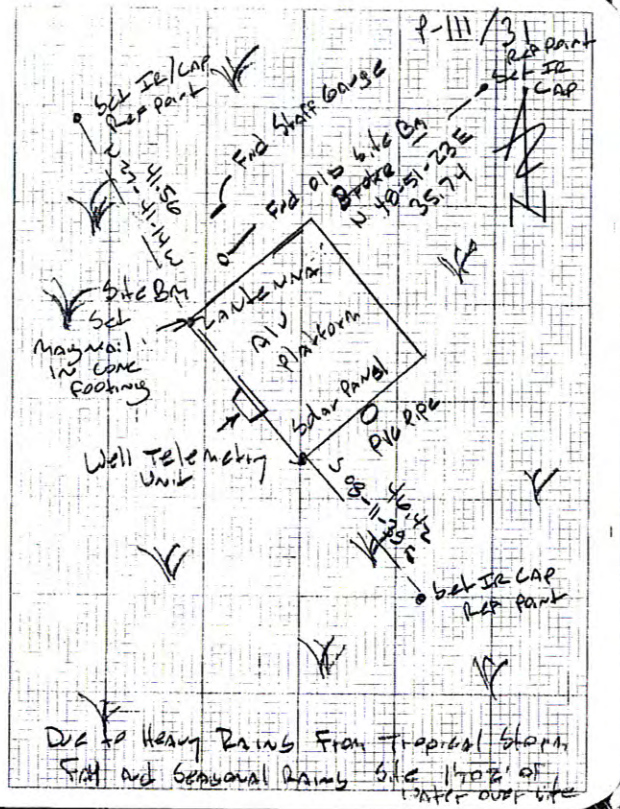 P-111/31
Ref Point
Set IR
CAP
Set IR/CAP
Ref Point
41.56
Fnd Staff Gauge
Fnd Old Site Bm
Broke
N 48-51-23 E
35.74
N
Site Bm
Set
Magnail
IN Conc
Footing
Antenna
Platform
Solar Panel
PVC Pipe
Well Telemetry
Unit
46.42
S 08-11-39 E
Set IR CAP
Ref Point
Due to Heavy Rains From Tropical Storm
Fay and Seasonal Rains Site
Water over site